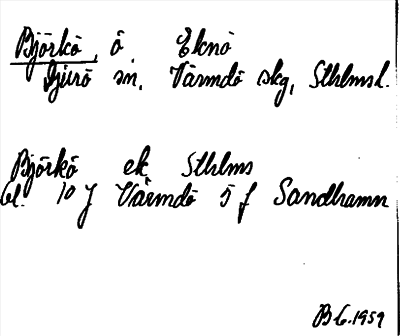 Björkö, ö Eknö
Djurö sn, Värmdö skg, Sthlms l.
Björkö ek Sthlms
bl. 10 J Värmdö 5 f Sandhamn
B 6.1959